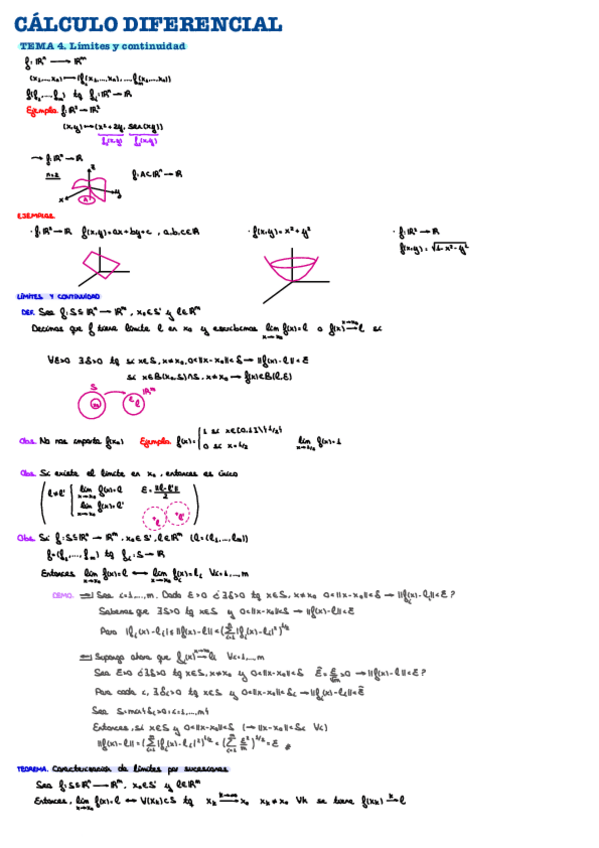 CÁLCULO DIFERENCIAL
TEMA 4. Límites y continuidad
f: ℝⁿ → ℝᵐ
(x₁,...,xₙ) → (f₁(x₁,...,xₙ),...,fₘ(x₁,...,xₙ))
f(f₁,...,fₘ) tq fᵢ: ℝⁿ → ℝ
Ejemplo f: ℝ² → ℝ²
(x,y) → (x²+2y, sen(xy))
f₁(x,y) f₂(x,y)
→ f: ℝⁿ → ℝ
n=2 z f: A⊂ℝⁿ → ℝ
x y A
EJEMPLOS
· f: ℝ² → ℝ f(x,y)=ax+by+c , a,b,c∈ℝ · f(x,y)=x²+y² · f: ℝ² → ℝ
f(x,y)=√1-x²-y²
LÍMITES Y CONTINUIDAD
DEF. Sea f: S⊆ℝⁿ → ℝᵐ, x₀∈S' y l∈ℝᵐ
Decimos que f tiene límite l en x₀ y escribimos lim x→x₀ f(x)=l o f(x) →(x→x₀) l si
∀ε>0 ∃δ>0 tq si x∈S, x≠x₀, 0<||x-x₀||<δ → ||f(x)-l||<ε
si x∈B(x₀,δ)∩S, x≠x₀ → f(x)∈B(l,ε)
S ℝᵐ
l
Obs. No nos importa f(x₀) Ejemplo f(x)= { 1 si x∈[0,1]\{1/2} lim x→1/2 f(x)=1
0 si x=1/2
Obs. Si existe el límite en x₀, entonces es único
( l≠l' { lim x→x₀ f(x)=l ε=||l-l'||/2
lim x→x₀ f(x)=l' ·l ·l' )
Obs. Si f: S⊆ℝⁿ → ℝᵐ, x₀∈S', l∈ℝᵐ (l=(l₁,...,lₘ))
f=(f₁,...,fₘ) tq fᵢ: S → ℝ
Entonces lim x→x₀ f(x)=l ↔ lim x→x₀ fᵢ(x)=lᵢ ∀i=1,...,m
DEMO. ⇒ Sea i=1,...,m. Dado ε>0 ¿∃δ>0 tq x∈S, x≠x₀ 0<||x-x₀||<δ → ||fᵢ(x)-lᵢ||<ε?
Sabemos que ∃δ>0 tq x∈S y 0<||x-x₀||<δ → ||f(x)-l||<ε
Pero |fᵢ(x)-lᵢ|≤||f(x)-l||=(Σ|fᵢ(x)-lᵢ|²)^1/2
⇐ Suponga ahora que fᵢ(x) →(x→x₀) lᵢ ∀i=1,...,m
Sea ε>0 ¿∃δ>0 tq x∈S, x≠x₀ y 0<||x-x₀||<δ ε̃=ε/√m>0 → ||f(x)-l||<ε?
Para cada i, ∃δᵢ>0 tq x∈S y 0<||x-x₀||<δᵢ → ||fᵢ(x)-lᵢ||<ε̃
Sea
Entonces, si x∈S y 0<||x-x₀||<δ (→ ||x-x₀||<δᵢ ∀i)
||f(x)-l||=(Σ|fᵢ(x)-lᵢ|²)^1/2<(Σ ε²/m)^1/2=ε
TEOREMA. Caracterización de límites por sucesiones
Sea f: S⊆ℝⁿ → ℝᵐ, x₀∈S' y l∈ℝᵐ
Entonces, lim x→x₀ f(x)=l ↔ ∀(xₖ)⊂S tq xₖ →(k→∞) x₀ xₖ≠x₀ ∀k se tiene f(xₖ) →(k) l